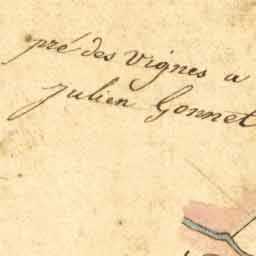 pré des vignes a
Julien Gonnet